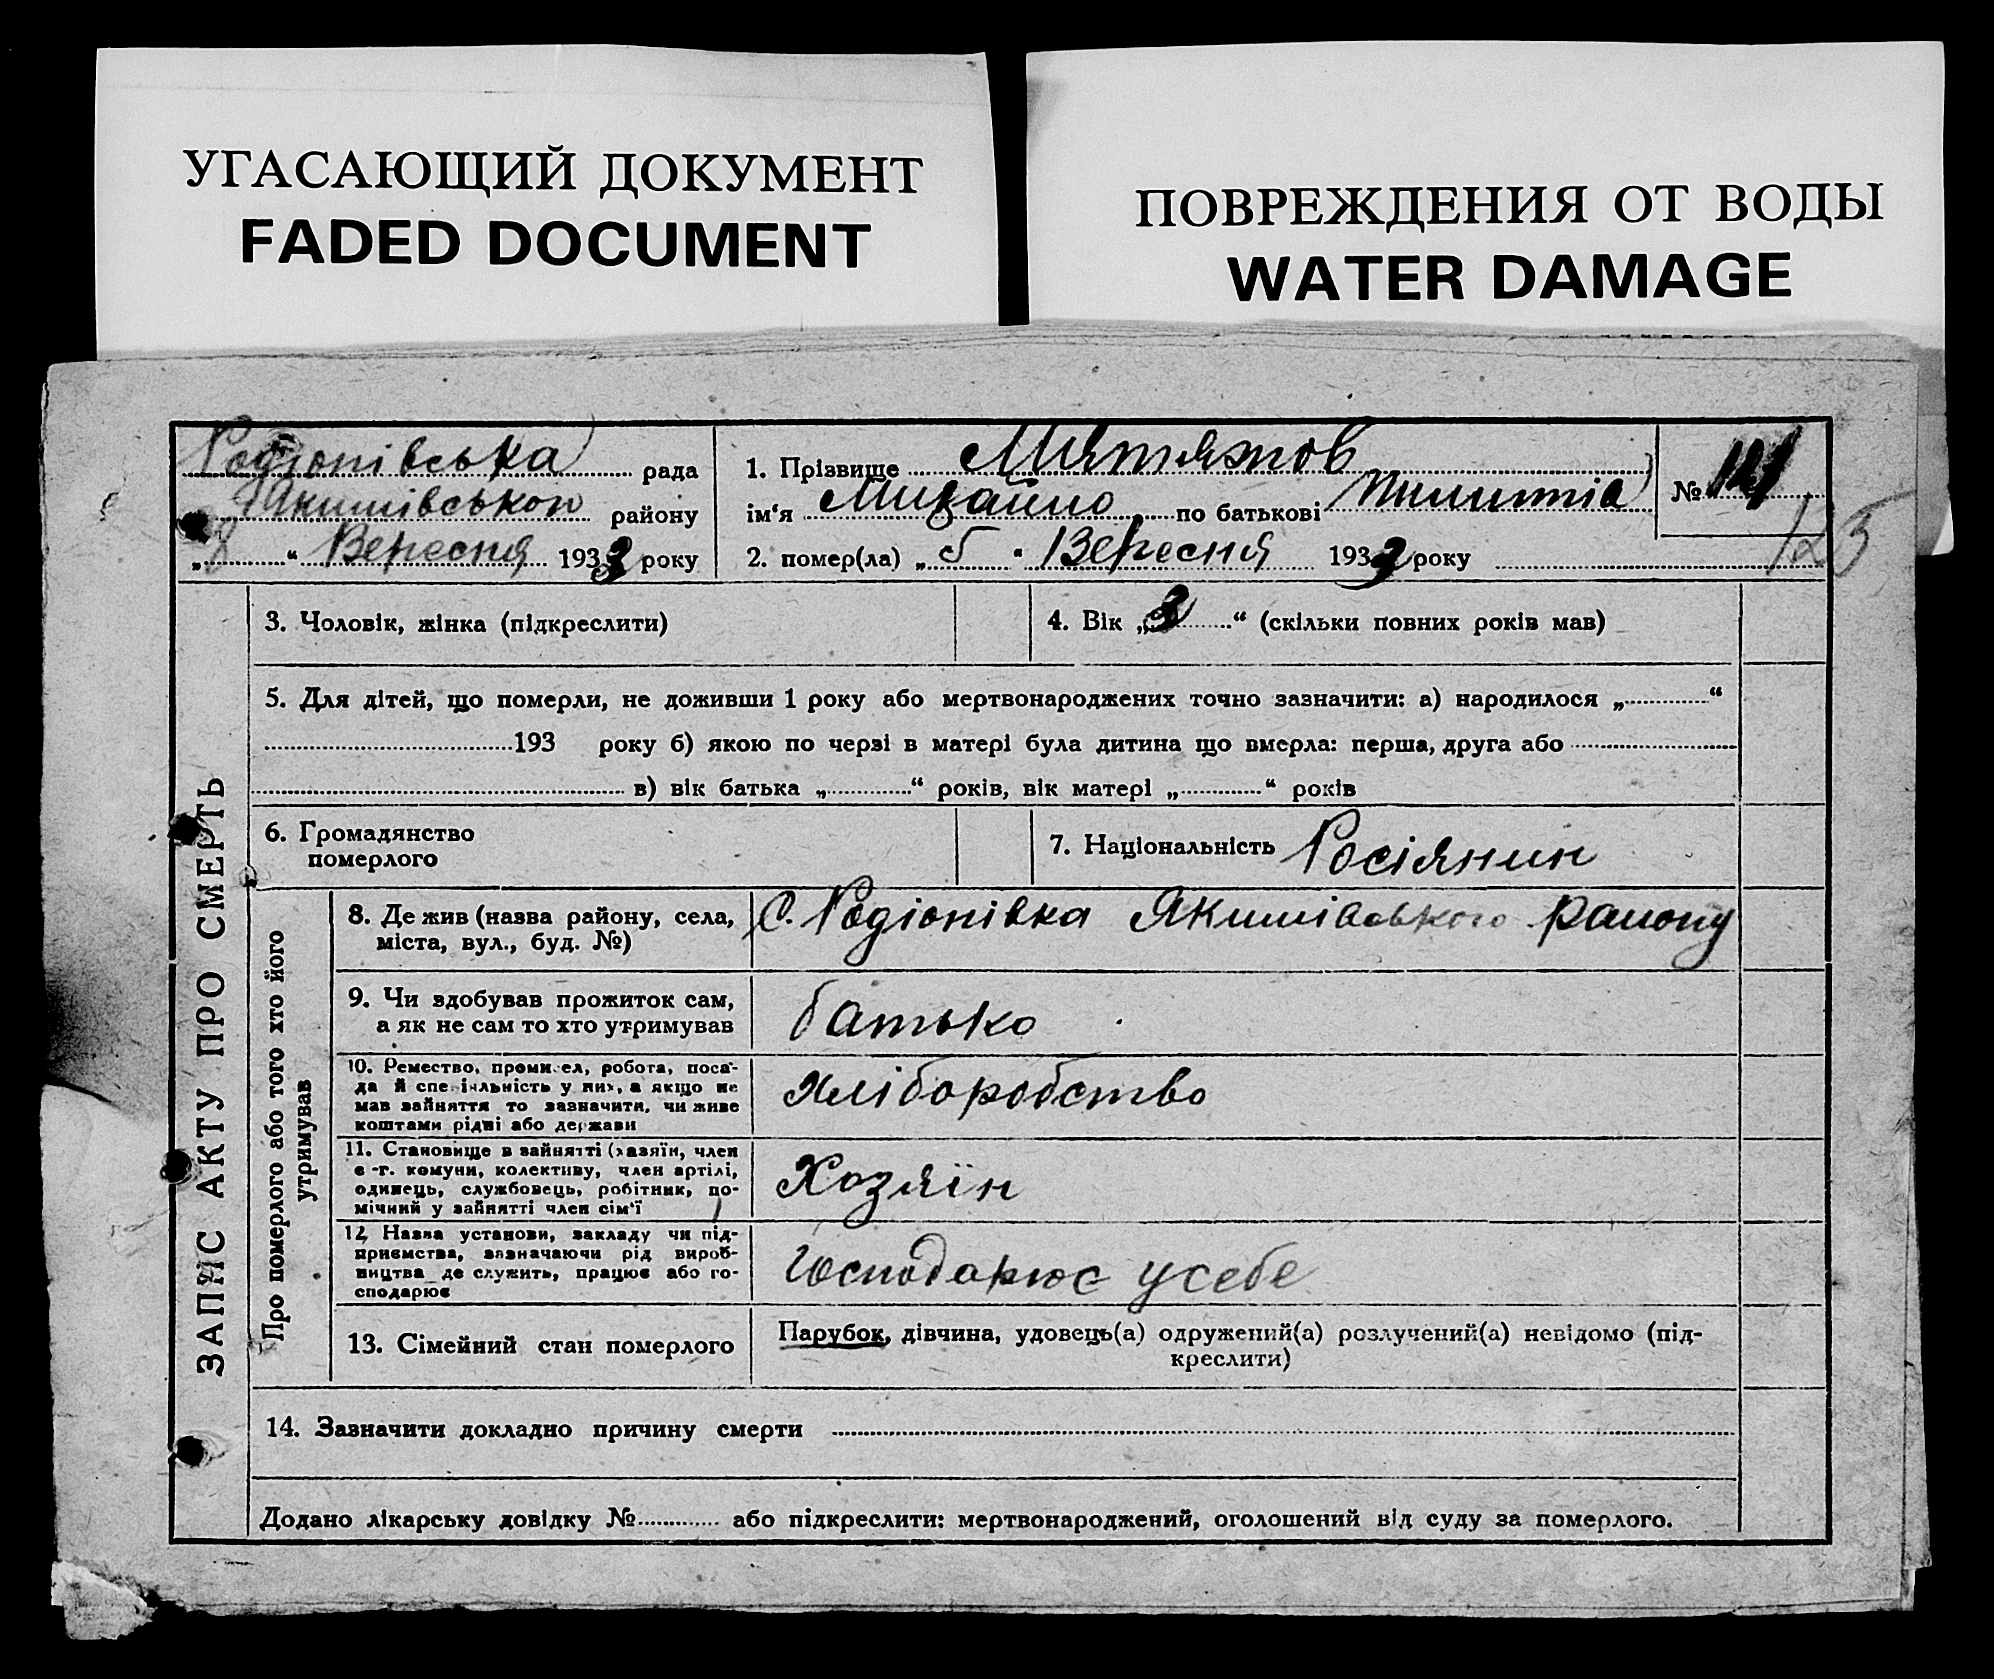 УГАСАЮЩИЙ ДОКУМЕНТ
FADED DOCUMENT
ПОВРЕЖДЕНИЯ ОТ ВОДЫ
WATER DAMAGE
Родіонівська рада
Якимівського району
„8“ Вересня 1933 року
1. Прізвище Мятяжов
ім‘я Михайло по батькові
2. помер(ла) „5“ Вересня 1933 року
№
125
ЗАПИС АКТУ ПРО СМЕРТЬ
3. Чоловік, жінка (підкреслити)
4. Вік „3“ (скільки повних років мав)
5. Для дітей, що померли, не доживши 1 року або мертвонароджених точно зазначити: а) народилося „ “
193 року б) якою по черзі в матері була дитина що вмерла: перша, друга або
в) вік батька „ “ років, вік матері „ “ років
6. Громадянство
померлого
7. Національність Росіянин
Про померлого або того хто його
утримував
8. Де жив (назва району, села,
міста, вул., буд. №)
С. Родіонівка Якимівського району
9. Чи здобував прожиток сам,
а як не сам то хто утримував
батько
10. Ремество, промисел, робота, поса-
да й спеціяльність у них, а якщо не
мав зайняття то зазначити, чи живе
коштами рідні або держави
Хліборобство
11. Становище в зайнятті (хазяїн, член
с.-г. комуни, колективу, член артілі,
одинець, службовець, робітник, по-
мічний у зайнятті член сім‘ї
Хозяїн
12. Назва установи, закладу чи під-
приємства, зазначаючи рід вироб-
ництва де служить, працює або го-
сподарює
Господарює у себе
13. Сімейний стан померлого
Парубок, дівчина, удовець(а) одружений(а) розлучений(а) невідомо (під-
креслити)
14. Зазначити докладно причину смерти
Додано лікарську довідку № або підкреслити: мертвонароджений, оголошений від суду за померлого.